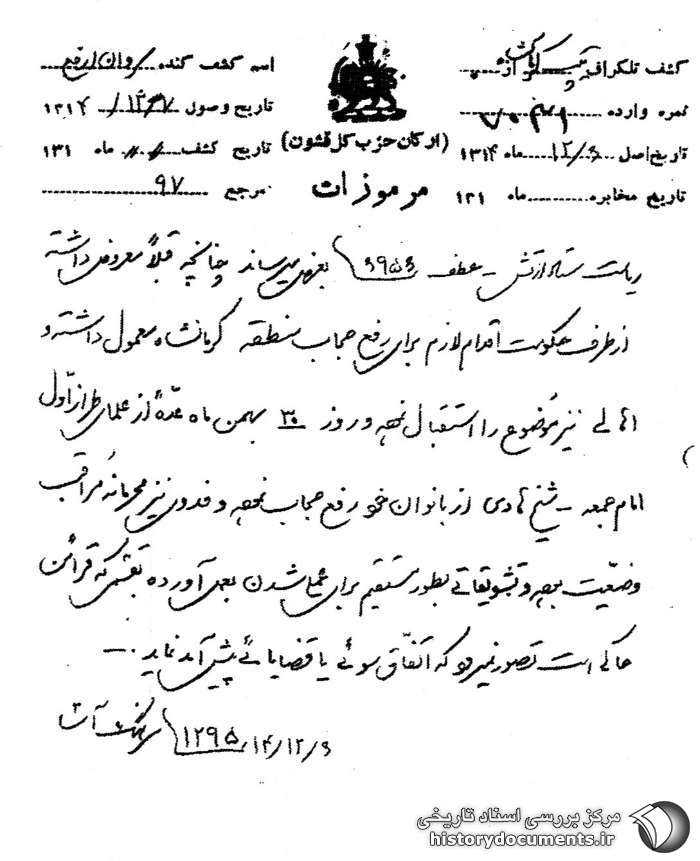 کشف تلگراف تیپ کرمانشاه از ............ اسم کشف کننده
نمره وارده ۷۰۳۹۱ تاریخ وصول ۱۲/۷/ ۱۳۱۴
تاریخ اصل ۱۲/۶ ماه ۱۳۱۴ تاریخ کشف ماه ۱۳۱
تاریخ مخابره ............ ماه ۱۳۱ مرجع ۹۷
(ارکان حزب کل قشون)
مرموزات
ریاست ستاد ارتش - عطف ۶۹۵۶ بعرض میرساند چنانچه قبلاً معروض داشته
از طرف حکومت اقدام لازم برای رفع حجاب منطقه کرمانشاه معمول داشته و
اهالی نیز موضوع را استقبال نموده و روز ۳۰ بهمن ماه عدّهٔ از علمای طراز اول
امام جمعه - شیخ هادی از بانوان خود رفع حجاب نموده و فدوی نیز محرمانه مراقب
وضعیت بوده و تشویقاتی بطور مستقیم برای عملی شدن بعمل آورده بقسمی که قرائن
حاکی است تصور نمیرود که اتفاق سوئی یا قضایائی پیش آمد نماید.
۱۴/۱۲/۶ ۱۲۹۵ سرهنگ
مرکز بررسی اسناد تاریخی
historydocuments.ir